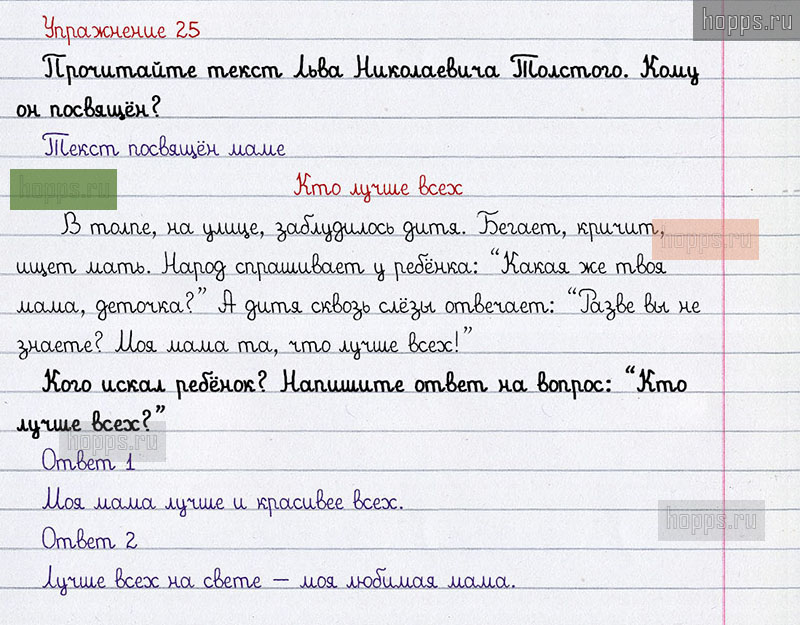 hopps.ru
Упражнение 25
Прочитайте текст Льва Николаевича Толстого. Кому
он посвящён?
Текст посвящён маме
hopps.ru
Кто лучше всех
В толпе, на улице, заблудилось дитя. Бегает, кричит,
hopps.ru
ищет мать. Народ спрашивает у ребёнка: “Какая же твоя
мама, деточка?” А дитя сквозь слёзы отвечает: “Разве вы не
знаете? Моя мама та, что лучше всех!”
Кого искал ребёнок? Напишите ответ на вопрос: “Кто
лучше всех?”
hopps.ru
Ответ 1
Моя мама лучше и красивее всех.
hopps.ru
Ответ 2
Лучше всех на свете – моя любимая мама.